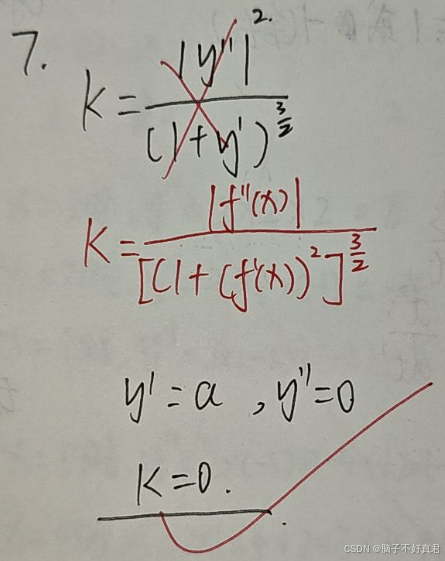 7.
K = |y''|². / (1+y')^(3/2)
K = |f''(x)| / [(1+(f'(x))²]^(3/2)
y' = a , y'' = 0
K = 0.
CSDN @脑子不好真君